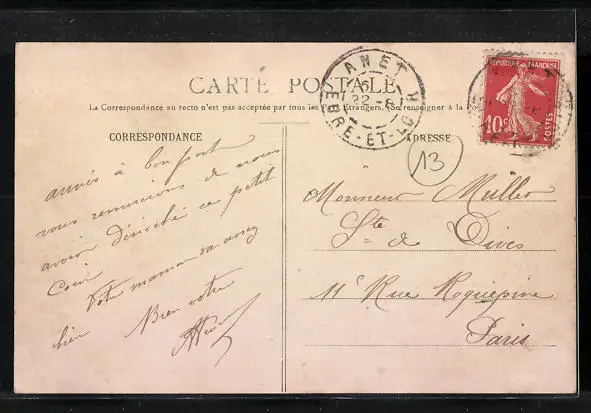 CARTE POSTALE
La Correspondance au recto n'est pas acceptée par tous les Pays Étrangers. Se renseigner à la Poste
CORRESPONDANCE
ADRESSE
ANET
22 - 8
EURE-ET-LOIR
RÉPUBLIQUE FRANÇAISE
10c
POSTES
13
arrivés à bon port
vous remercions de nous
avoir déniché ce petit
Coin
Votre maman va assez
bien Bien votre
Monsieur Muller
Sté de Dives
11 Rue Roquépine
Paris